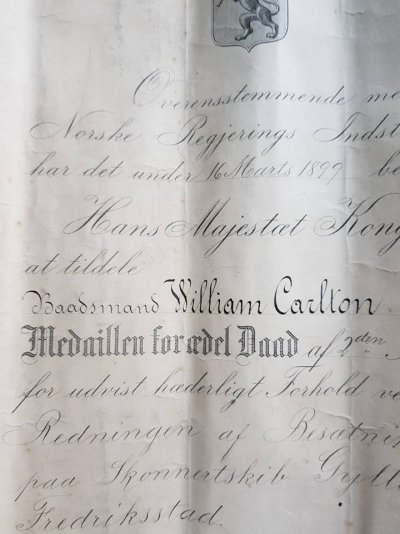 Overensstemmende me
Norske Regjerings Indst
har det under 16 Marts 1899 be
Hans Majestæt Kong
at tildele
Baadsmand William Carlton
Medaillen for ædel Daad af 2den
for udvist hæderligt Forhold ve
Redningen af Besætni
paa Skonnertskib Gyll
Fredriksstad.